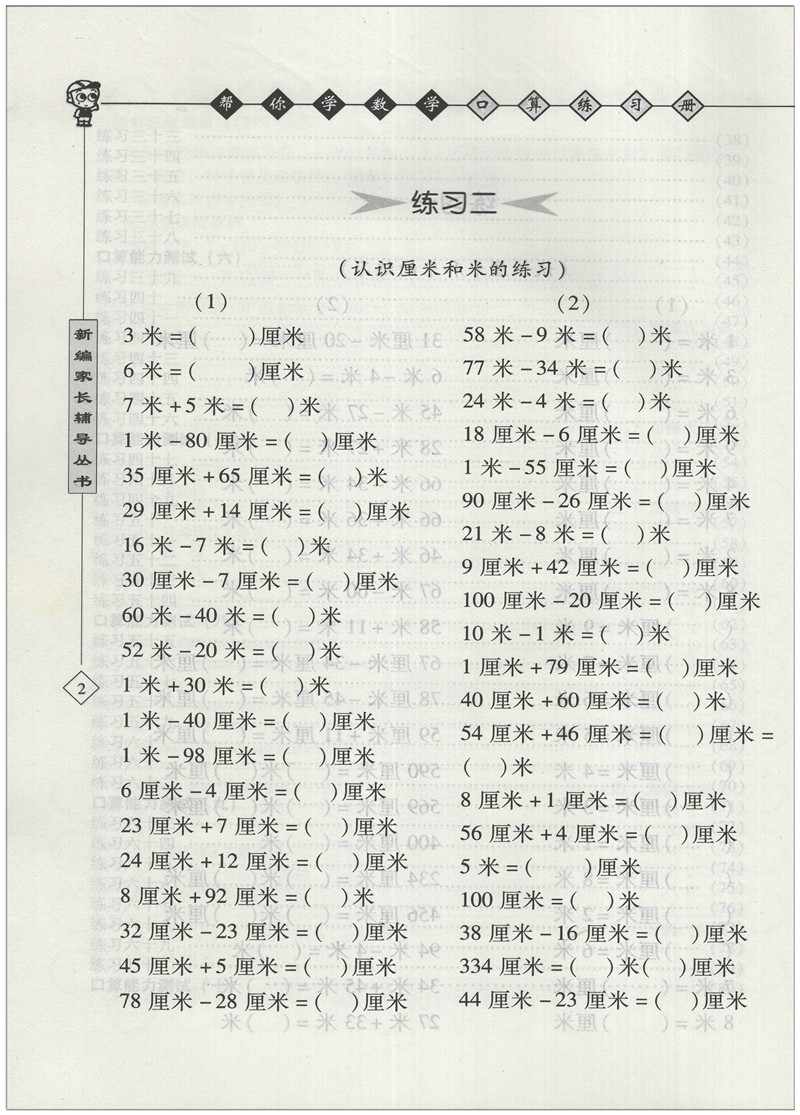 帮你学数学口算练习册
练习二
(认识厘米和米的练习)
(1)
3 米=( )厘米
6 米=( )厘米
7 米+5 米=( )米
1 米-80 厘米=( )厘米
35 厘米+65 厘米=( )米
29 厘米+14 厘米=( )厘米
16 米-7 米=( )米
30 厘米-7 厘米=( )厘米
60 米-40 米=( )米
52 米-20 米=( )米
1 米+30 米=( )米
1 米-40 厘米=( )厘米
1 米-98 厘米=( )厘米
6 厘米-4 厘米=( )厘米
23 厘米+7 厘米=( )厘米
24 厘米+12 厘米=( )厘米
8 厘米+92 厘米=( )米
32 厘米-23 厘米=( )厘米
45 厘米+5 厘米=( )厘米
78 厘米-28 厘米=( )厘米
(2)
58 米-9 米=( )米
77 米-34 米=( )米
24 米-4 米=( )米
18 厘米-6 厘米=( )厘米
1 米-55 厘米=( )厘米
90 厘米-26 厘米=( )厘米
21 米-8 米=( )米
9 厘米+42 厘米=( )厘米
100 厘米-20 厘米=( )厘米
10 米-1 米=( )米
1 厘米+79 厘米=( )厘米
40 厘米+60 厘米=( )米
54 厘米+46 厘米=( )厘米=
( )米
8 厘米+1 厘米=( )厘米
56 厘米+4 厘米=( )厘米
5 米=( )厘米
100 厘米=( )米
38 厘米-16 厘米=( )厘米
334 厘米=( )米( )厘米
44 厘米-23 厘米=( )厘米
新编家长辅导丛书
2